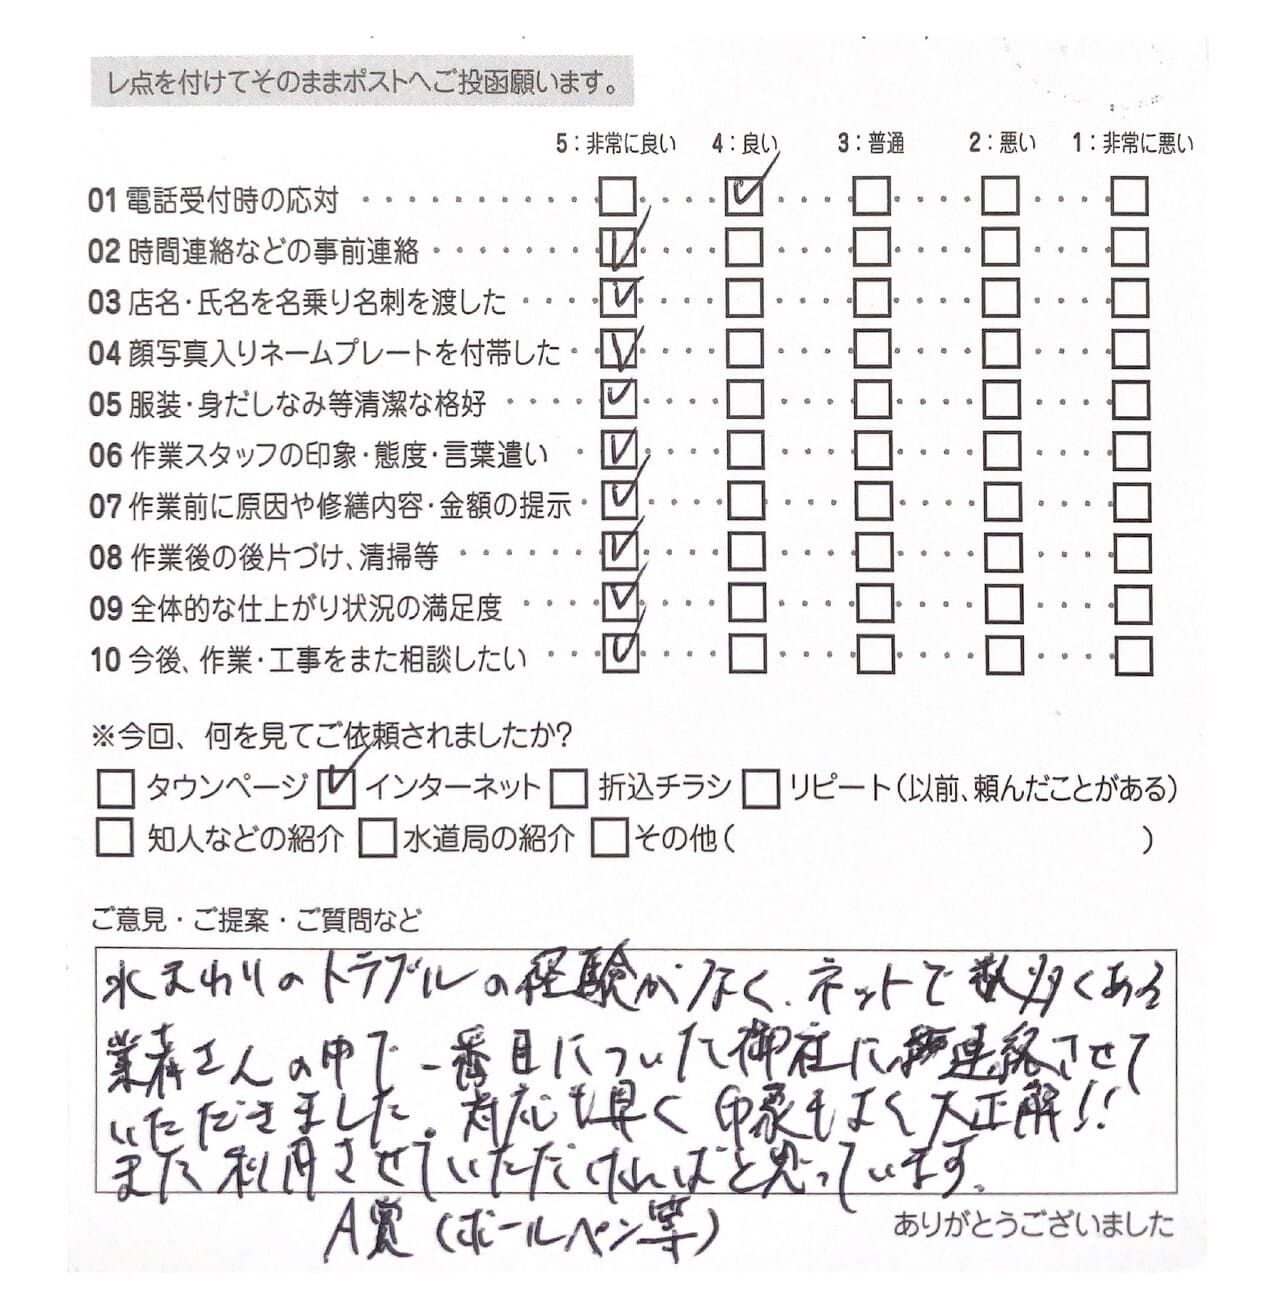 レ点を付けてそのままポストへご投函願います。
5：非常に良い 4：良い 3：普通 2：悪い 1：非常に悪い
01 電話受付時の応対
02 時間連絡などの事前連絡
03 店名・氏名を名乗り名刺を渡した
04 顔写真入りネームプレートを付帯した
05 服装・身だしなみ等清潔な格好
06 作業スタッフの印象・態度・言葉遣い
07 作業前に原因や修繕内容・金額の提示
08 作業後の後片づけ、清掃等
09 全体的な仕上がり状況の満足度
10 今後、作業・工事をまた相談したい
※今回、何を見てご依頼されましたか?
タウンページ インターネット 折込チラシ リピート（以前、頼んだことがある）
知人などの紹介 水道局の紹介 その他（ ）
ご意見・ご提案・ご質問など
水まわりのトラブルの経験がなく、ネットで数多くある
業者さんの中で一番目についた御社に連絡させて
いただきました。対応も早く印象もよく大正解!!
また利用させていただければと思っています。
A賞（ボールペン等）
ありがとうございました